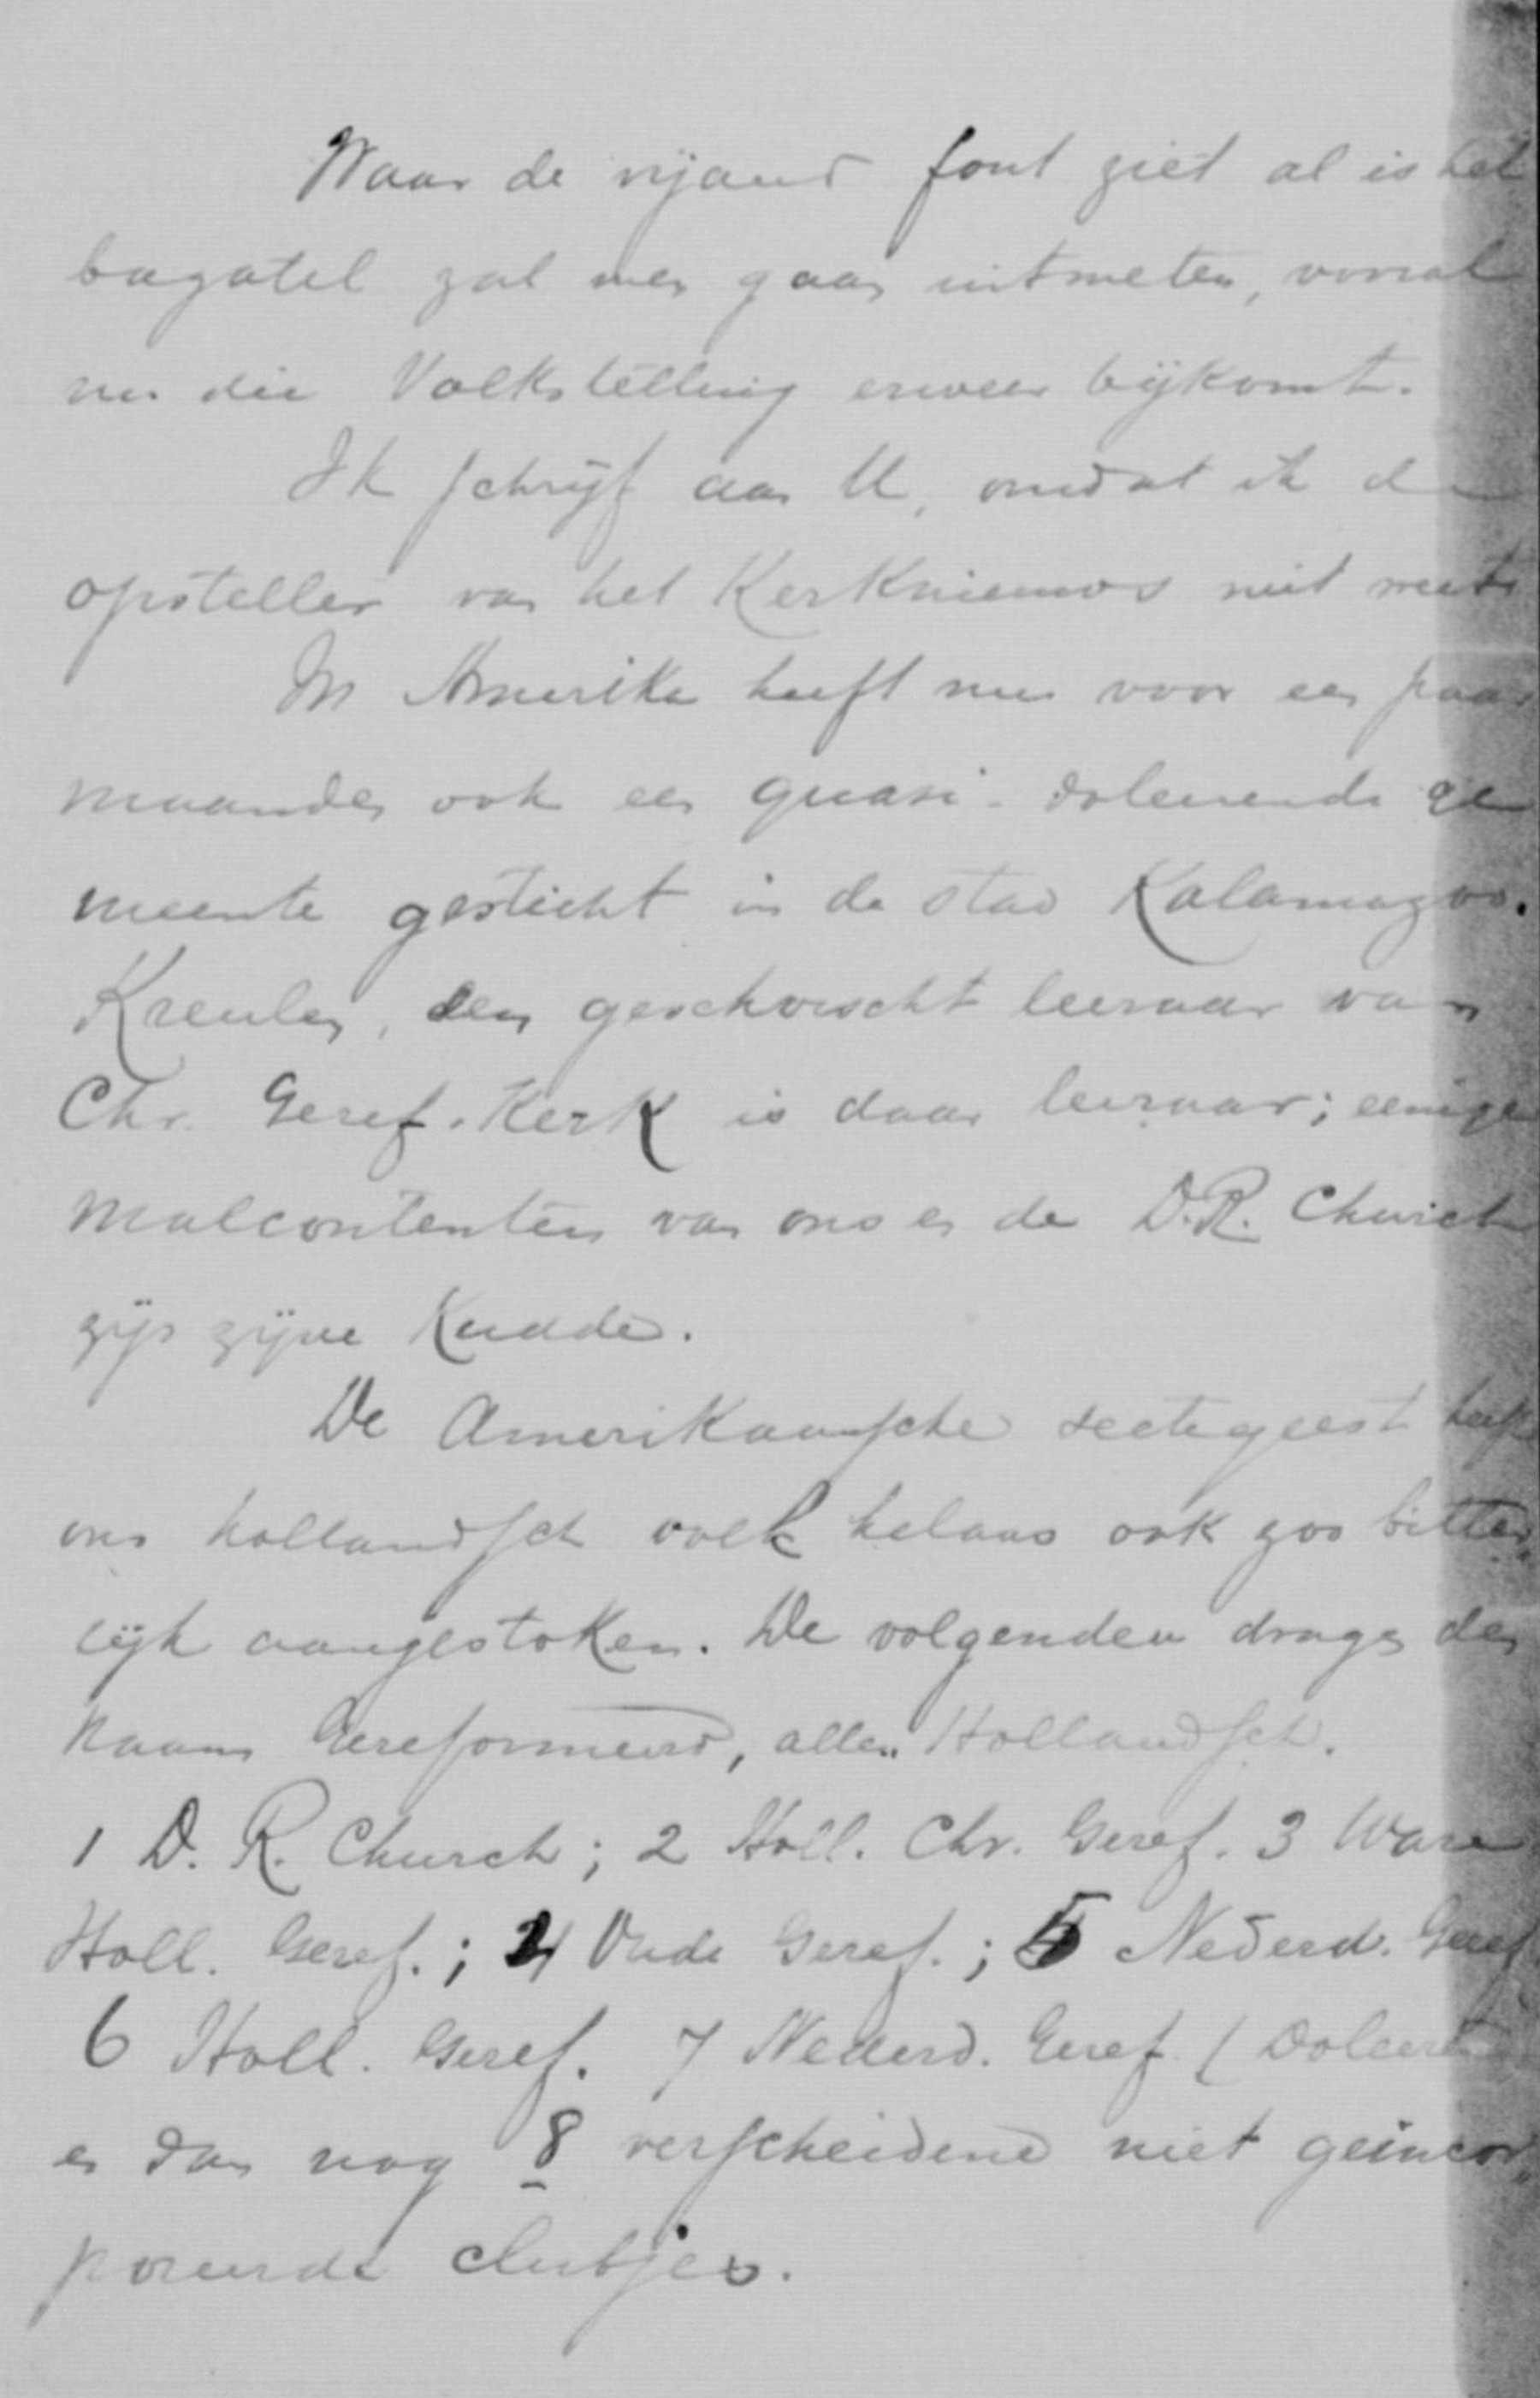 Waar de vijand fout ziet al is het
bagatel zal men gaan uitmeten, vooral
nu die Volkstelling erweer bijkomt.
Ik schrijf aan U, omdat ik de
opsteller van het Kerknieuws niet weet.
In Amerika heeft men voor een paar
maanden ook een quasi-doleerende ge
meente gesticht in de stad Kalamazoo.
Kreulen, een geschorscht leeraar van
Chr. Geref. Kerk is daar leeraar; eenige
malcontenten van ons en de D.R. Church
zijn zijne Kudde.
De Amerikaansche sectegeest heeft
ons hollandsch volk helaas ook zoo bitter„
lijk aangestoken. De volgenden dragen den
naam Gereformeerd, allen Hollandsch.
1 D. R. Church; 2 Holl. Chr. Geref. 3 Ware
Holl. Geref.; 4 Oude Geref.; 5 Nederd. Geref
6 Holl. Geref. 7 Nederd. Geref. (Doleerend
en dan nog 8 verscheidene niet geincor„
poreerde clubjes.